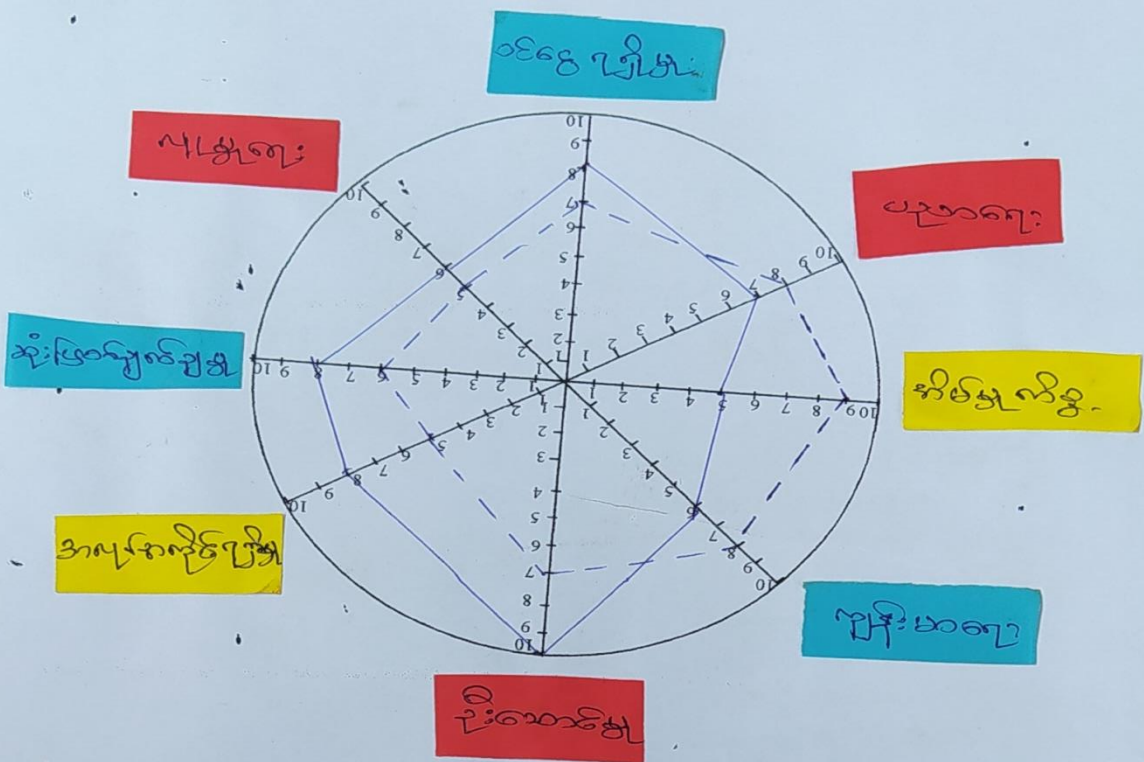 ဝင်ငွေ ရရှိမှု
ပညာရေး
အိမ်မှုကိစ္စ
ကျန်းမာရေး
ဦးဆောင်မှု
အလုပ်အကိုင်ရရှိမှု
ဆုံးဖြတ်ချက်ချမှု
လူမှုရေး
10
9
8
7
6
5
4
3
2
1
1
2
3
4
5
6
7
8
9
10
1
2
3
4
5
6
7
8
9
10
1
2
3
4
5
6
7
8
9
10
1
2
3
4
5
6
7
8
9
10
1
2
3
4
5
6
7
8
9
10
1
2
3
4
5
6
7
8
9
10
1
2
3
4
5
6
7
8
9
10